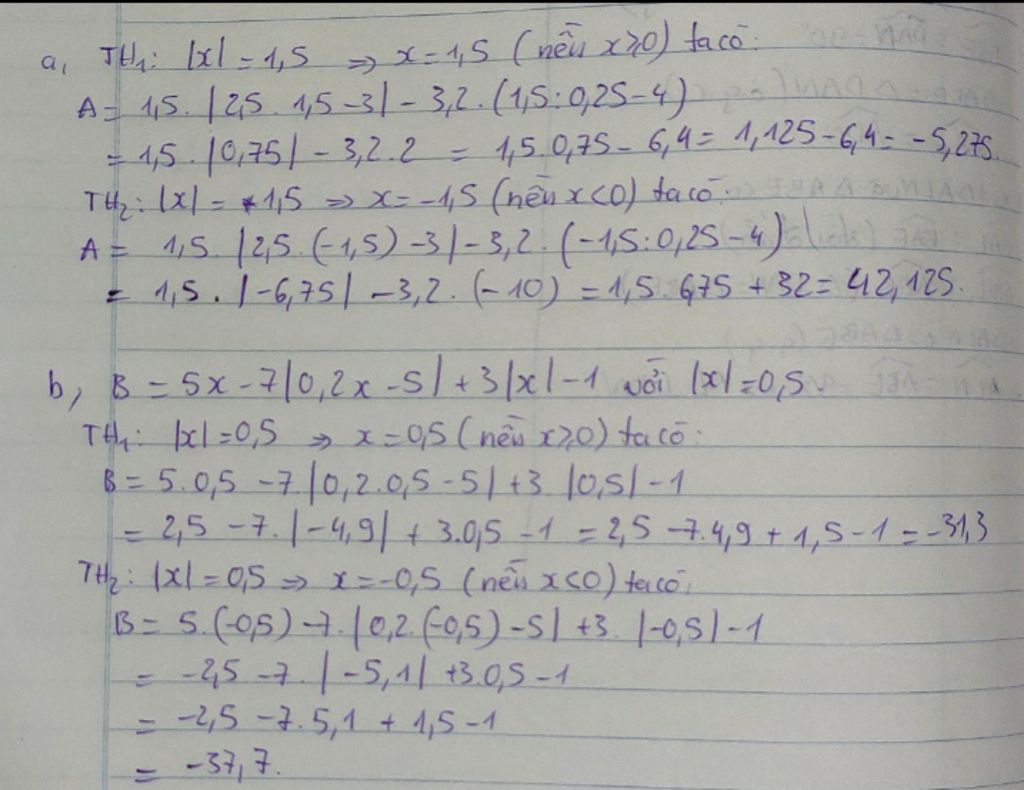 a, TH₁: |x| = 1,5 ⇒ x = 1,5 (nếu x ≥ 0) ta có:
A = 1,5. |2,5. 1,5 - 3| - 3,2. (1,5: 0,25 - 4)
= 1,5. |0,75| - 3,2. 2 = 1,5. 0,75 - 6,4 = 1,125 - 6,4 = -5,275.
TH₂: |x| = 1,5 ⇒ x = -1,5 (nếu x < 0) ta có:
A = 1,5. |2,5. (-1,5) - 3| - 3,2. (-1,5: 0,25 - 4)
= 1,5. |-6,75| - 3,2. (-10) = 1,5. 6,75 + 32 = 42,125.
b, B = 5x - 7|0,2x - 5| + 3|x| - 1 với |x| = 0,5
TH₁: |x| = 0,5 ⇒ x = 0,5 (nếu x ≥ 0) ta có:
B = 5. 0,5 - 7. |0,2. 0,5 - 5| + 3. |0,5| - 1
= 2,5 - 7. |-4,9| + 3. 0,5 - 1 = 2,5 - 7. 4,9 + 1,5 - 1 = -31,3
TH₂: |x| = 0,5 ⇒ x = -0,5 (nếu x < 0) ta có:
B = 5. (-0,5) - 7. |0,2. (-0,5) - 5| + 3. |-0,5| - 1
= -2,5 - 7. |-5,1| + 3. 0,5 - 1
= -2,5 - 7. 5,1 + 1,5 - 1
= -37,7.